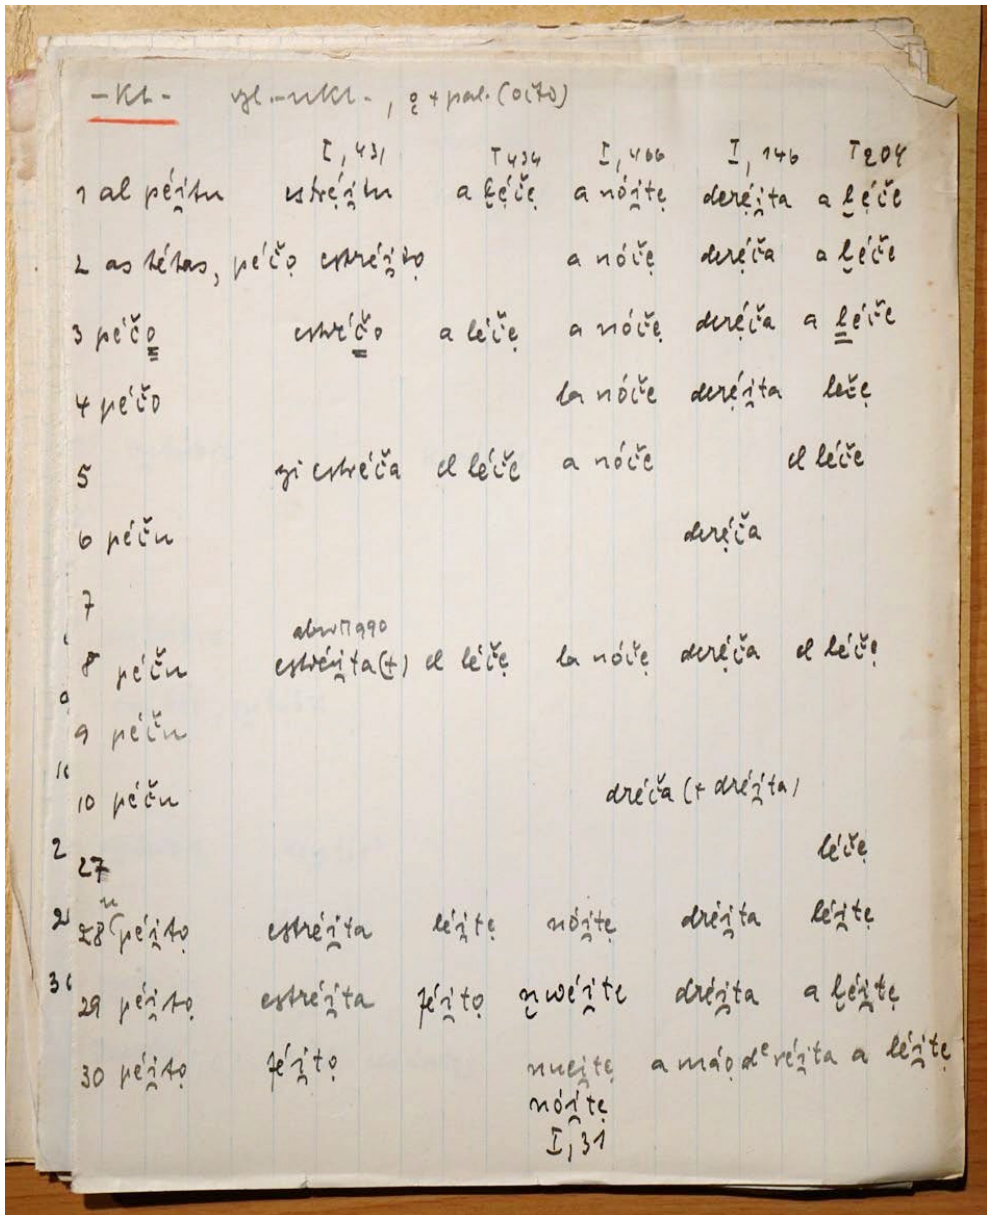 -Kt- vgl. -nKt-, o̜ + pal. (octo)
I, 431 I 434 I, 466 I, 146 I 204
1 al péi̯tu estréi̯tu a ḷẹ́čẹ a nói̯tẹ deréi̯ta a ḷẹ́če
2 as tétas, péčọ estréi̯tọ a nóčẹ deréča a ḷéče
3 péčọ estréčo a léčẹ a nóčẹ deréča a ḷéče
4 péčo la nóče deréi̯ta lečẹ
5 estréča el léče a nóče el léče
6 péču deréča
7
abw II 990
8 péču estréi̯ta(+) el léčẹ la nóčẹ deréča el léčẹ
9 péču
10 péču dréča (+ dréi̯ta)
27 léčẹ
28 péi̯tọ estréi̯ta léi̯tẹ nói̯tẹ dréi̯ta léi̯tẹ
29 péi̯tọ estréi̯ta féi̯tọ nwéi̯te dréi̯ta a léi̯tẹ
30 péi̯tọ féi̯tọ nuei̯tẹ a máọ dᵉréi̯ta a léi̯tẹ
nói̯tẹ
I, 31